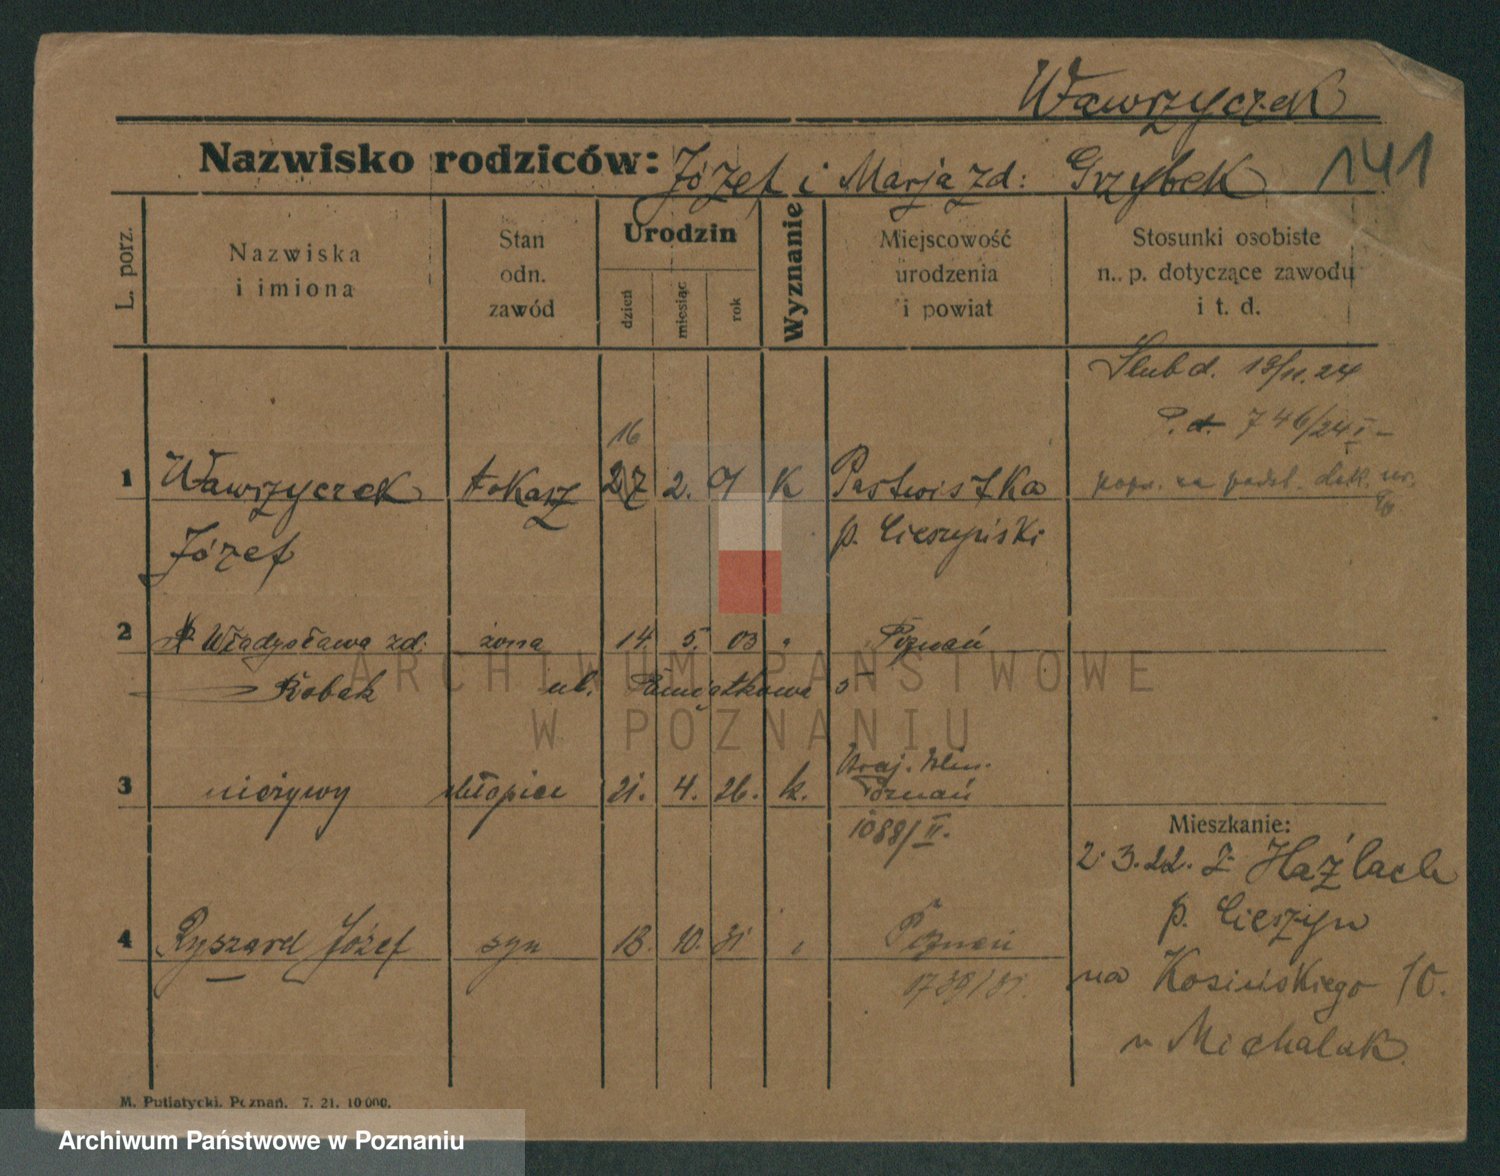 Wawrzyczek
Nazwisko rodziców: Józef i Marja zd: Grzybek 141
L. porz.
Nazwiska i imiona
Stan odn. zawód
Urodzin
dzień miesiąc rok
Wyznanie
Miejscowość urodzenia i powiat
Stosunki osobiste n. p. dotyczące zawodu i t. d.
Ślub d. 18/11. 24
P. d. 746/24 I
16
1 Wawrzyczek tokarz 27 2. 01 K Pastwiska
Józef p. Cieszyński
2 Władysława zd. żona 14. 5. 03 " Poznań
Kobak ul. Pamiątkowa 5
3 nieżywy chłopiec 21. 4. 26. k. Poznań
1088/II.
Mieszkanie:
2. 3. 22. z Haźlach
p. Cieszyn
4 Ryszard Józef syn 13. 10. 31 " Poznań
1739/31.
na Kosińskiego 10.
u Michalak.
M. Putiatycki. Poznań. 7. 21. 10 000.
ARCHIWUM PAŃSTWOWE
W POZNANIU
Archiwum Państwowe w Poznaniu